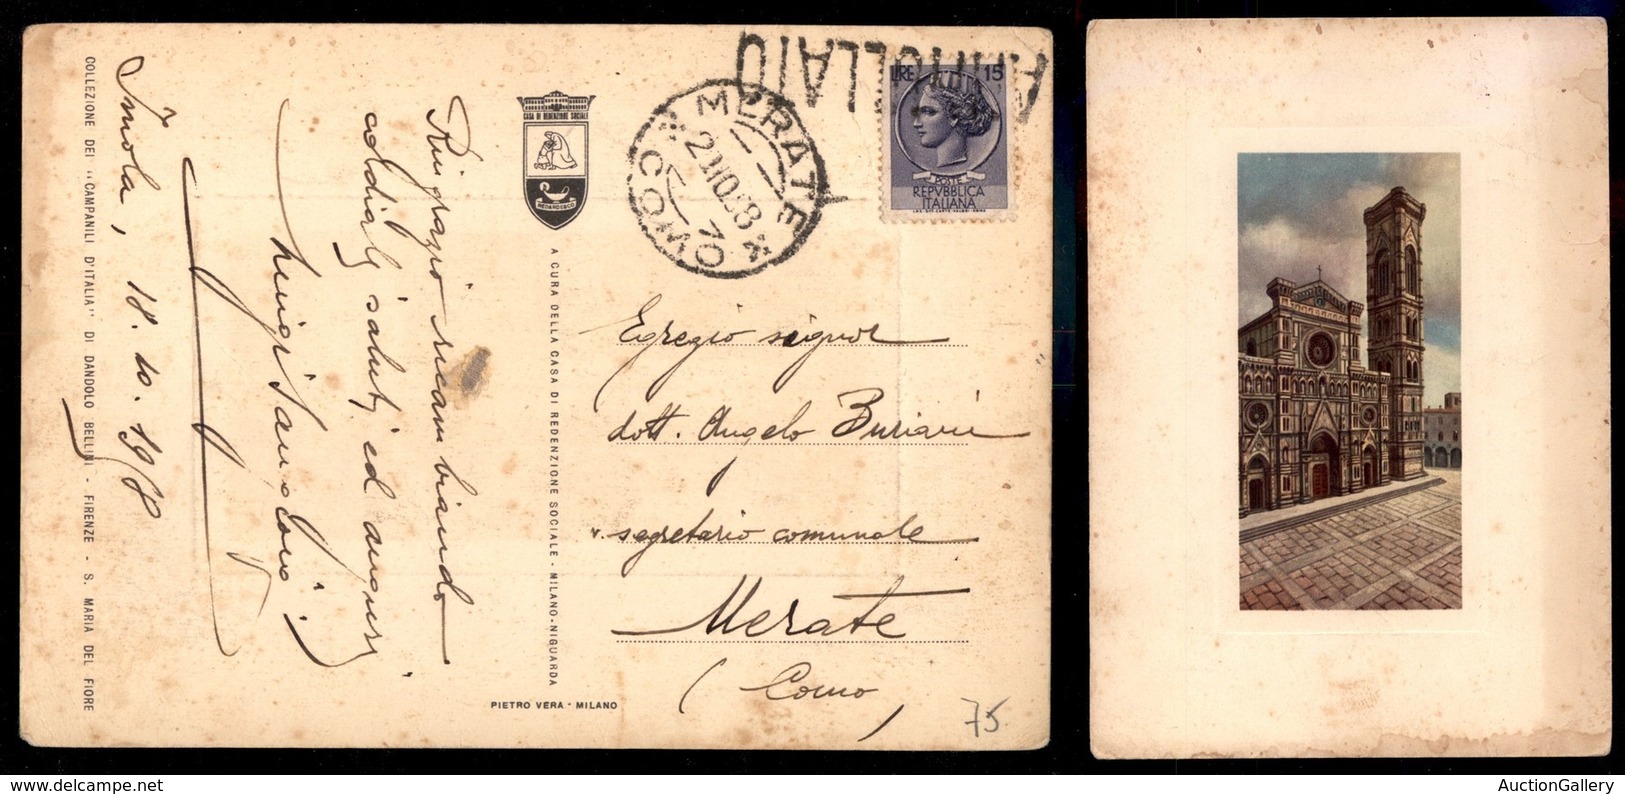 COLLEZIONE DEI "CAMPANILI D'ITALIA" DI DANDOLO BELLINI - FIRENZE - S. MARIA DEL FIORE
Imola, 18.10.1968
Ringrazio ricambiando
cordiali saluti ed auguri
Luigi
CASA DI REDENZIONE SOCIALE
A CURA DELLA CASA DI REDENZIONE SOCIALE - MILANO-NIGUARDA
PIETRO VERA - MILANO
ANNULLATO
MERATE
(COMO)
LIRE 15
POSTE
REPVBBLICA
ITALIANA
Egregio signor
dott. Angelo Buriani
segretario comunale
Merate
(Como)
75
AuctionGallery